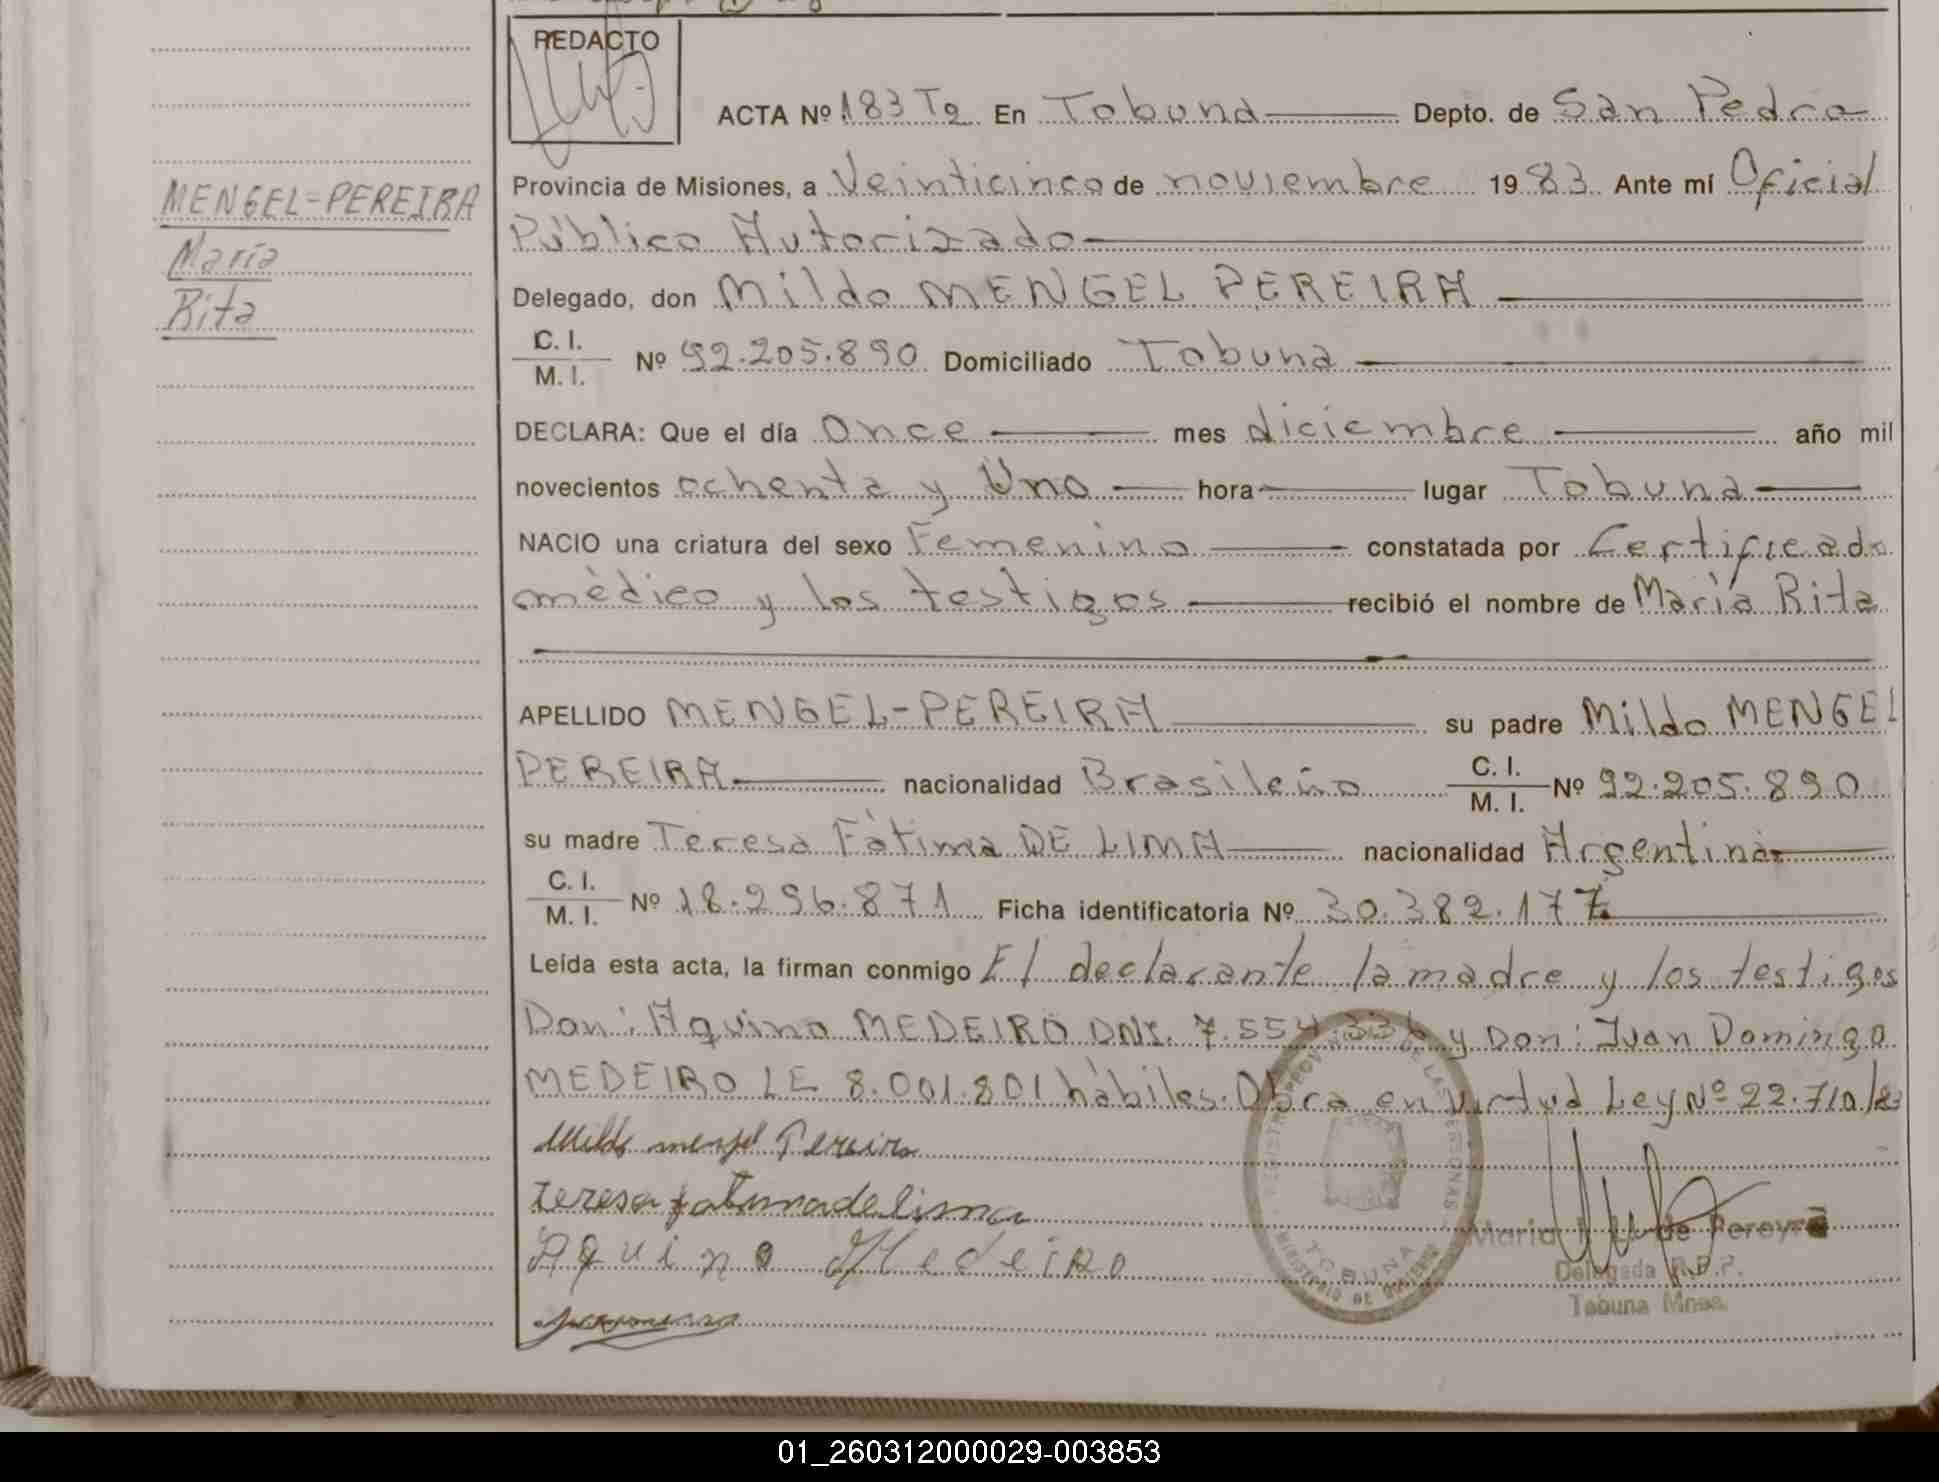 REDACTO
ACTA Nº 183 T2 En Tobuna Depto. de San Pedro
Provincia de Misiones, a Veinticinco de noviembre 19 83 Ante mí Oficial
Público Autorizado
Delegado, don Mildo MENGEL PEREIRA
C. I.
M. I. Nº 92.205.890 Domiciliado Tobuna
DECLARA: Que el día Once mes diciembre año mil
novecientos ochenta y Uno hora lugar Tobuna
NACIO una criatura del sexo Femenino constatada por Certificado
médico y los testigos recibió el nombre de María Rita
APELLIDO MENGEL-PEREIRA su padre Mildo MENGEL
PEREIRA nacionalidad Brasileño C. I. M. I. Nº 92.205.890
su madre Teresa Fátima DE LIMA nacionalidad Argentina
C. I.
M. I. Nº 18.296.871 Ficha identificatoria Nº 30.382.177
Leída esta acta, la firman conmigo El declarante la madre y los testigos
Don: Aquino MEDEIRO DNI. 7.554.336 y Don: Juan Domingo
MEDEIRO LE 8.001.801 hábiles. Obra en virtud Ley Nº 22.710/
Mildo mengel Pereira
teresa fatima de lima
Aquino Medeiro
MENGEL-PEREIRA
María
Rita
DE LAS PERSONAS
TOBUNA
MINISTERIO DE GOBIERNO
Maria de Pereyra
Delegada R.P.P.
Tobuna Mnes.
01_260312000029-003853